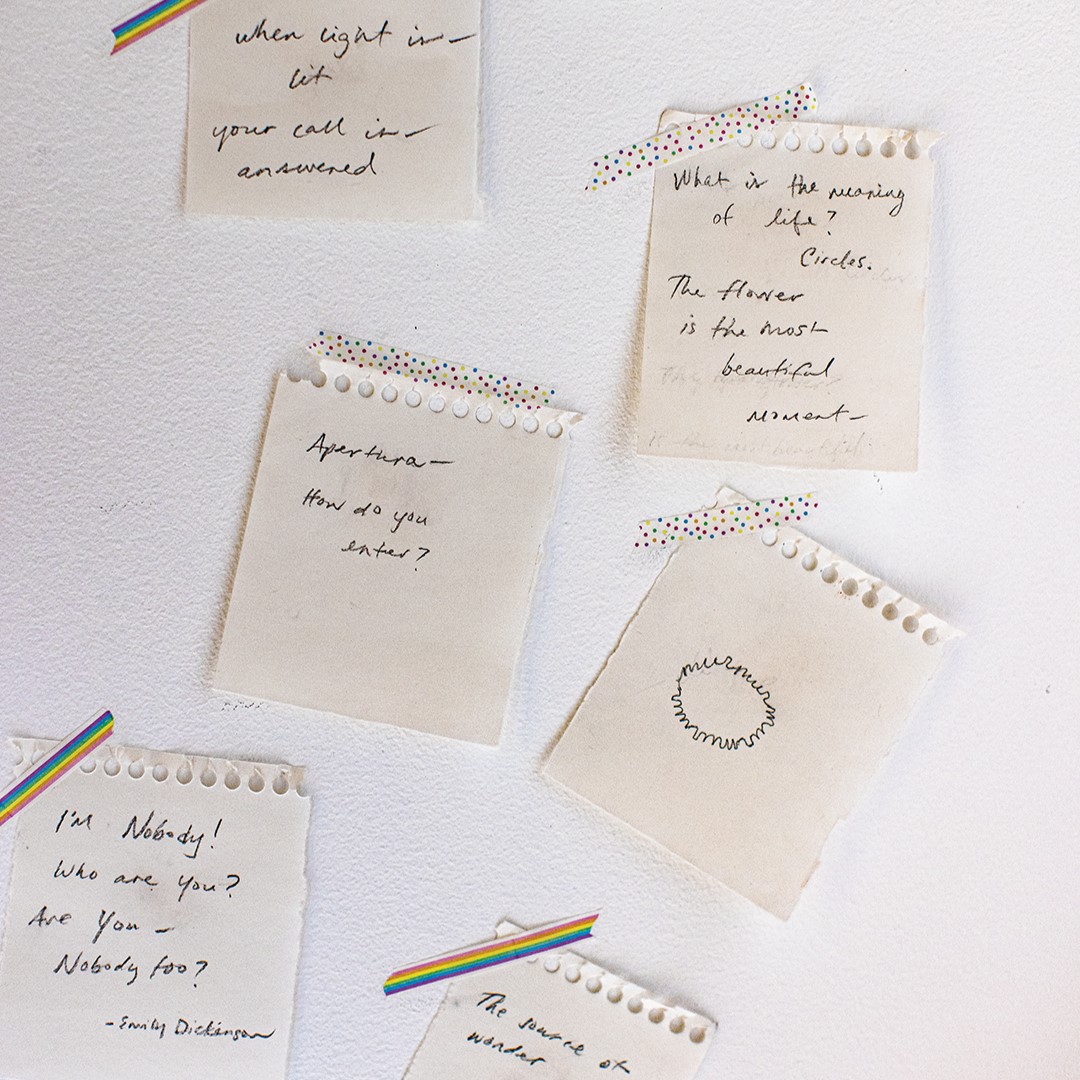 when light is—
lit
your call is—
answered
What is the meaning
of life?
Circles.
The flower
is the most
beautiful
moment—
Apertura—
How do you
enter?
murmurmurmurmurmur
I'm Nobody!
Who are you?
Are You –
Nobody too?
-Emily Dickinson
The source of
wonder